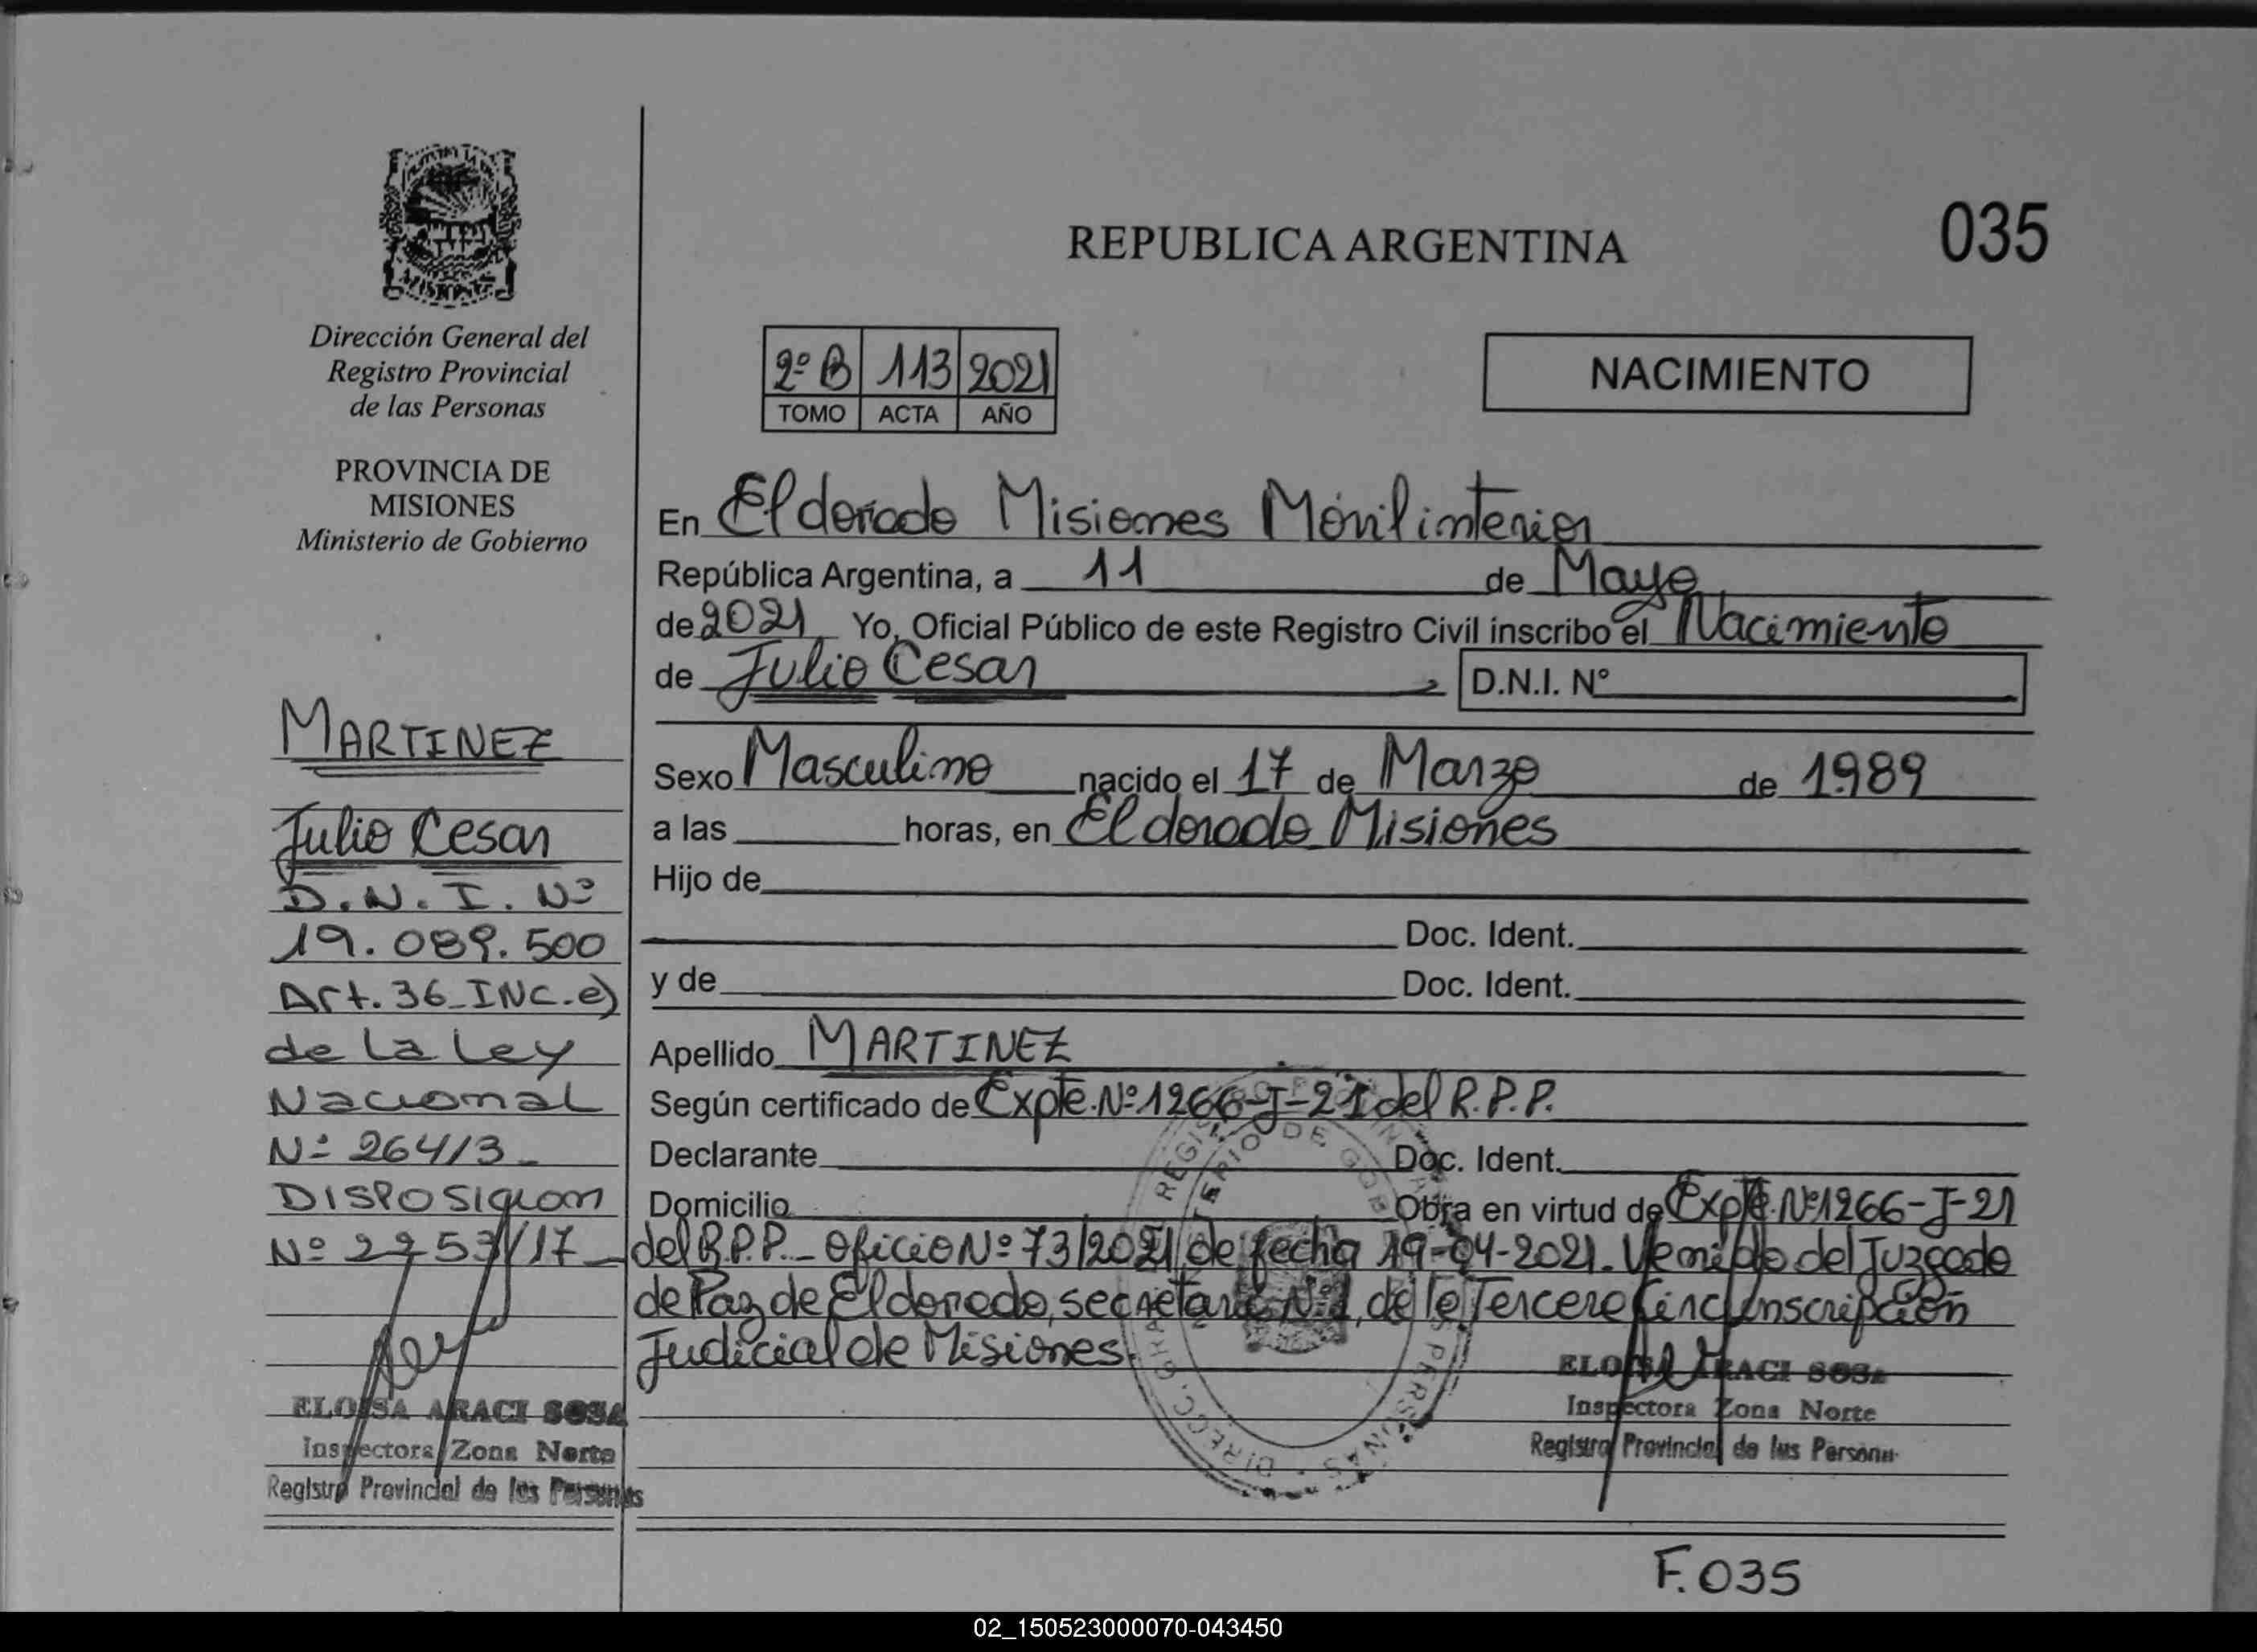 REPUBLICA ARGENTINA
035
Dirección General del
Registro Provincial
de las Personas
PROVINCIA DE
MISIONES
Ministerio de Gobierno
2º B 113 2021
TOMO ACTA AÑO
NACIMIENTO
En Eldorado Misiones Móvil interior
República Argentina, a 11 de Mayo
de 2021 Yo, Oficial Público de este Registro Civil inscribo el Nacimiento
de Julio Cesar D.N.I. Nº
Sexo Masculino nacido el 17 de Marzo de 1989
a las horas, en Eldorado Misiones
Hijo de
Doc. Ident.
y de Doc. Ident.
Apellido MARTINEZ
Según certificado de Expte. Nº 1266-J-21 del R.P.P.
Declarante Doc. Ident.
Domicilio Obra en virtud de Expte. Nº 1266-J-21
del R.P.P. - Oficio Nº 73/2021 de fecha 19-04-2021. Venido del Juzgado
de Paz de Eldorado, secretaría Nº 1, de la Tercera Circunscripción
Judicial de Misiones.
ELOISA ARACI SOSA
Inspectora Zona Norte
Registro Provincial de las Persona
MARTINEZ
Julio Cesar
D.N.I. Nº
19.089.500
Art. 36 INC. e)
de la Ley
Nacional
Nº 26413
DISPOSICION
Nº 2953/17
ELOISA ARACI SOSA
Inspectora Zona Norte
Registro Provincial de las Personas
F. 035
02_150523000070-043450